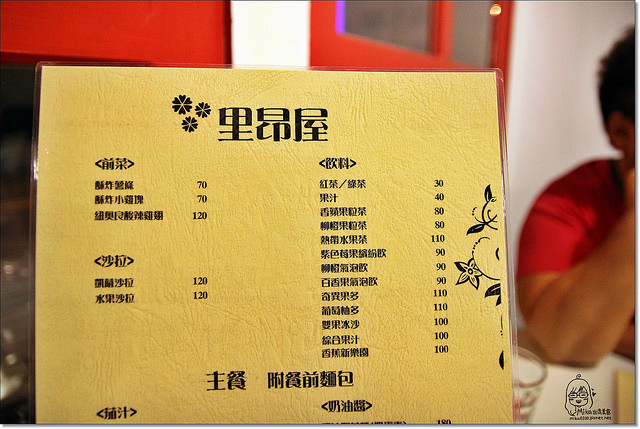 里昂屋
<前菜>
酥炸薯條 70
酥炸小雞塊 70
紐奧良酸辣雞翅 120
<沙拉>
凱薩沙拉 120
水果沙拉 120
<飲料>
紅茶／綠茶 30
果汁 40
香蘋果粒茶 80
柳橙果粒茶 80
熱帶水果茶 110
紫色莓果繽紛飲 90
柳橙氣泡飲 90
百香果氣泡飲 90
奇異果多 110
葡萄柚多 110
雙果冰沙 100
綜合果汁 100
香蕉新樂園 100
主餐 附餐前麵包
<茄汁>
<奶油醬>
180